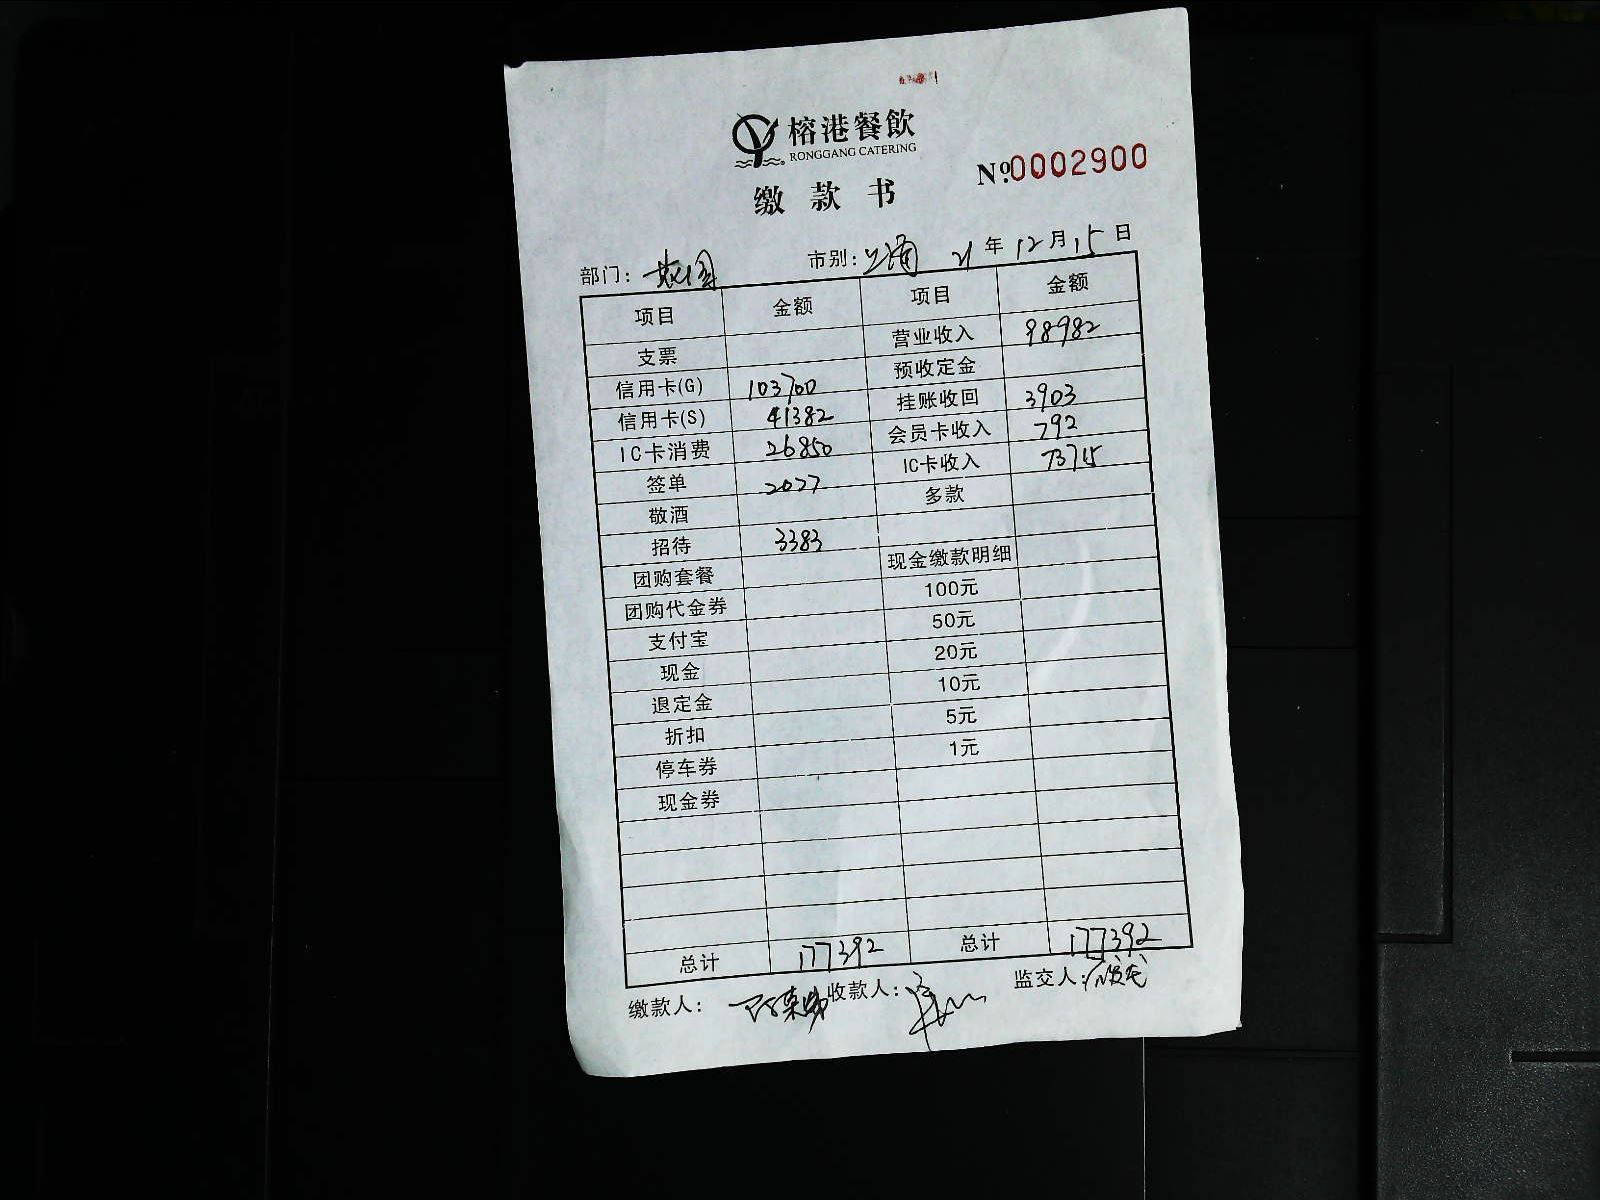 榕港餐飲
RONGGANG CATERING
缴款书
Nº:0002900
部门: 市别: 21 年 12 月 15 日
项目 金额 项目 金额
支票 营业收入 98982
信用卡(G) 103700 预收定金
信用卡(S) 41382 挂账收回 3903
IC卡消费 26850 会员卡收入 792
签单 2077 IC卡收入 73715
敬酒 多款
招待 3383
团购套餐 现金缴款明细
团购代金券 100元
支付宝 50元
现金 20元
退定金 10元
折扣 5元
停车券 1元
现金券
总计 177392 总计 177392
缴款人: 收款人: 监交人: